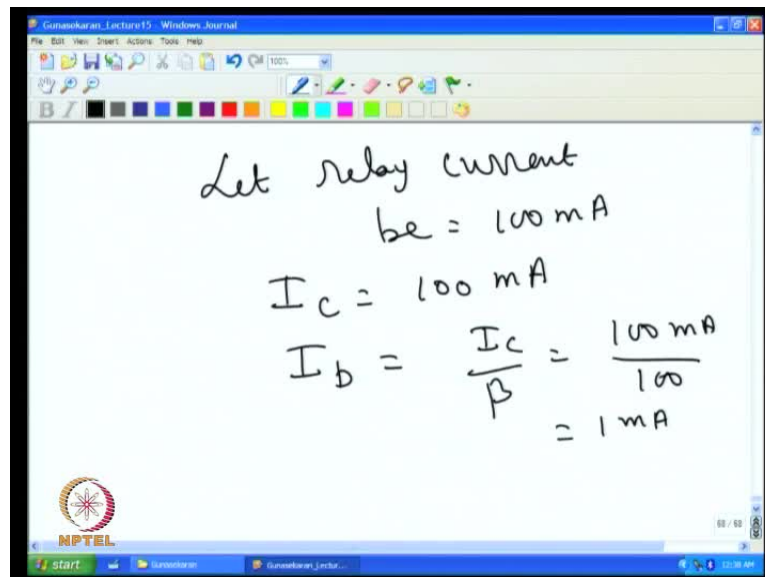 Gunasekaran_Lecture15 - Windows Journal
File Edit View Insert Actions Tools Help
100%
B I
Let relay current
be = 100 mA
I c = 100 mA
I b = Ic / β = 100 mA / 100
= 1 mA
NPTEL
68 / 68
start Gunasekaran Gunasekaran_Lectur... 12:38 AM